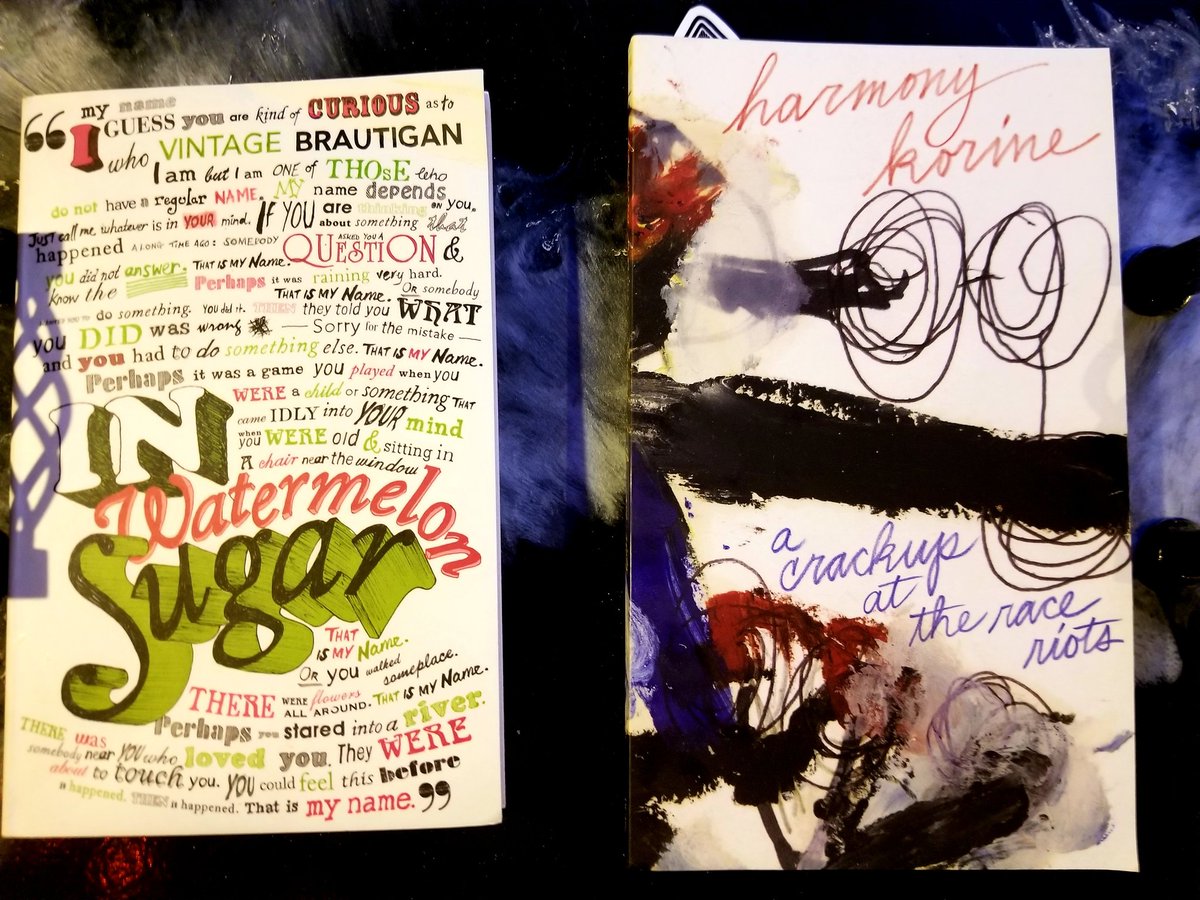 “ my name
I GUESS you are kind of CURIOUS as to
who VINTAGE BRAUTIGAN
I am but I am ONE of THOSE who
do not have a regular NAME. MY name depends
ON you.
Just call me whatever is in YOUR mind. IF YOU are thinking
about something that
happened A LONG TIME AGO: SOMEBODY ASKED YOU A QUESTION &
you did not answer. THAT IS MY Name.
know the
Perhaps it was raining very hard.
THAT IS MY Name. OR somebody
do something. YOU did it. THEN they told you WHAT
you DID was wrong — Sorry for the mistake —
and you had to do something else. THAT IS MY Name.
Perhaps it was a game you played when YOU
WERE a child or something THAT
came IDLY into YOUR mind
when you WERE old & sitting in
A chair near the window
IN
Watermelon
Sugar
THAT
IS MY Name.
OR you walked someplace.
THERE WERE flowers
ALL AROUND. THAT IS MY Name.
Perhaps you stared into a river.
THERE was
somebody near YOU who loved you. They WERE
about to touch you. YOU could feel this before
it happened. THEN it happened. That is my name. ”
harmony
korine
a
crackup
at
the race
riots